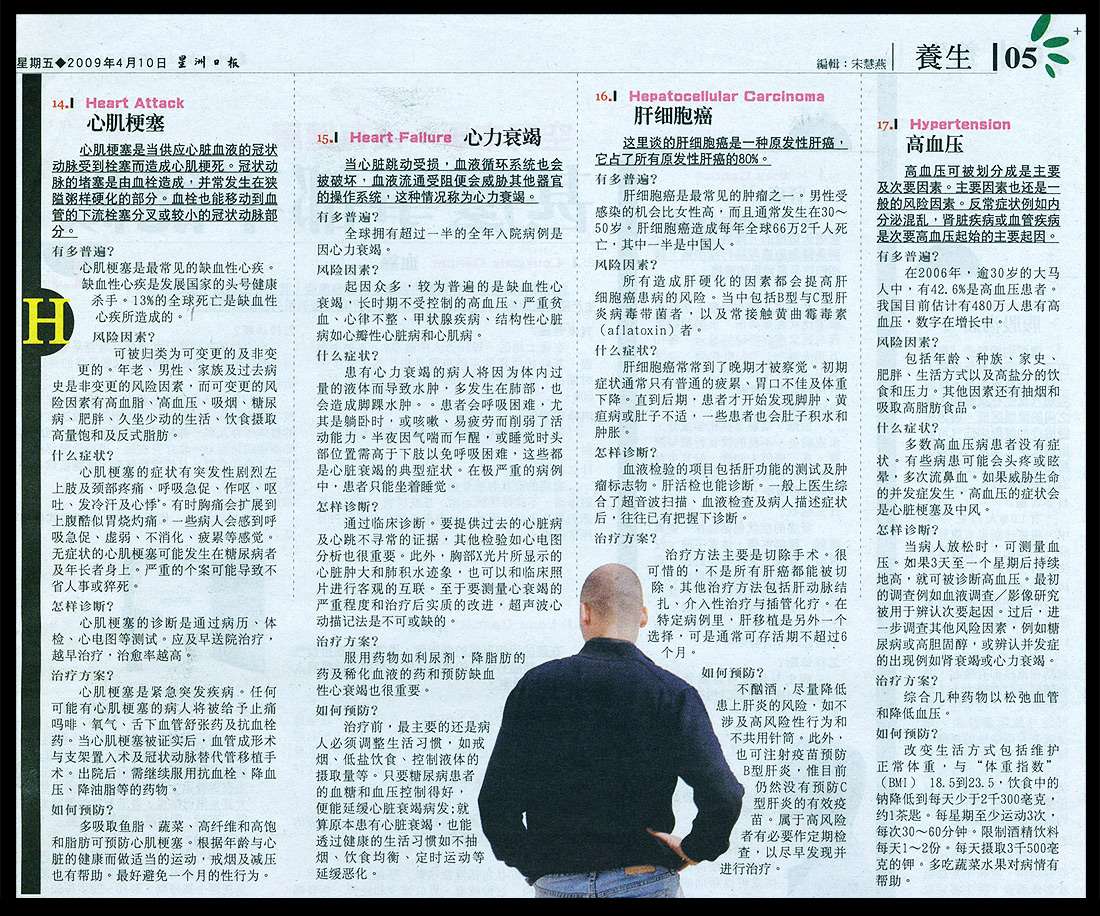 星期五◆2009年4月10日 星洲日报
编辑：宋慧燕
養生
05
14. Heart Attack
心肌梗塞
心肌梗塞是当供应心脏血液的冠状
动脉受到栓塞而造成心肌梗死。冠状动
脉的堵塞是由血栓造成，并常发生在狭
隘粥样硬化的部分。血栓也能移动到血
管的下流栓塞分叉或较小的冠状动脉部
分。
有多普遍？
心肌梗塞是最常见的缺血性心疾。
缺血性心疾是发展国家的头号健康
杀手。13%的全球死亡是缺血性
心疾所造成的。
H
风险因素？
可被归类为可变更的及非变
更的。年老、男性、家族及过去病
史是非变更的风险因素，而可变更的风
险因素有高血脂、高血压、吸烟、糖尿
病、肥胖、久坐少动的生活、饮食摄取
高量饱和及反式脂肪。
什么症状？
心肌梗塞的症状有突发性剧烈左
上肢及颈部疼痛、呼吸急促、作呕、呕
吐、发冷汗及心悸。有时胸痛会扩展到
上腹酷似胃烧灼痛。一些病人会感到呼
吸急促、虚弱、不消化、疲累等感觉。
无症状的心肌梗塞可能发生在糖尿病者
及年长者身上。严重的个案可能导致不
省人事或猝死。
怎样诊断？
心肌梗塞的诊断是通过病历、体
检、心电图等测试。应及早送院治疗，
越早治疗，治愈率越高。
治疗方案？
心肌梗塞是紧急突发疾病。任何
可能有心肌梗塞的病人将被给予止痛
吗啡、氧气、舌下血管舒张药及抗血栓
药。当心肌梗塞被证实后，血管成形术
与支架置入术及冠状动脉替代管移植手
术。出院后，需继续服用抗血栓、降血
压、降油脂等的药物。
如何预防？
多吸取鱼脂、蔬菜、高纤维和高饱
和脂肪可预防心肌梗塞。根据年龄与心
脏的健康而做适当的运动，戒烟及减压
也有帮助。最好避免一个月的性行为。
15. Heart Failure 心力衰竭
当心脏跳动受损，血液循环系统也会
被破坏，血液流通受阻便会威胁其他器官
的操作系统，这种情况称为心力衰竭。
有多普遍？
全球拥有超过一半的全年入院病例是
因心力衰竭。
风险因素？
起因众多，较为普遍的是缺血性心
衰竭，长时期不受控制的高血压、严重贫
血、心律不整、甲状腺疾病、结构性心脏
病如心瓣性心脏病和心肌病。
什么症状？
患有心力衰竭的病人将因为体内过
量的液体而导致水肿，多发生在肺部，也
会造成脚踝水肿。。患者会呼吸困难，尤
其是躺卧时，或咳嗽、易疲劳而削弱了活
动能力。半夜因气喘而乍醒，或睡觉时头
部位置需高于下肢以免呼吸困难，这些都
是心脏衰竭的典型症状。在极严重的病例
中，患者只能坐着睡觉。
怎样诊断？
通过临床诊断。要提供过去的心脏病
及心跳不寻常的证据，其他检验如心电图
分析也很重要。此外，胸部X光片所显示的
心脏肿大和肺积水迹象，也可以和临床照
片进行客观的互联。至于要测量心衰竭的
严重程度和治疗后实质的改进，超声波心
动描记法是不可或缺的。
治疗方案？
服用药物如利尿剂，降脂肪的
药及稀化血液的药和预防缺血
性心衰竭也很重要。
如何预防？
治疗前，最主要的还是病
人必须调整生活习惯，如戒
烟、低盐饮食、控制液体的
摄取量等。只要糖尿病患者
的血糖和血压控制得好，
便能延缓心脏衰竭病发；就
算原本患有心脏衰竭，也能
透过健康的生活习惯如不抽
烟、饮食均衡、定时运动等
延缓恶化。
16. Hepatocellular Carcinoma
肝细胞癌
这里谈的肝细胞癌是一种原发性肝癌，
它占了所有原发性肝癌的80%。
有多普遍？
肝细胞癌是最常见的肿瘤之一。男性受
感染的机会比女性高，而且通常发生在30～
50岁。肝细胞癌造成每年全球66万2千人死
亡，其中一半是中国人。
风险因素？
所有造成肝硬化的因素都会提高肝
细胞癌患病的风险。当中包括B型与C型肝
炎病毒带菌者，以及常接触黄曲霉毒素
（aflatoxin）者。
什么症状？
肝细胞癌常常到了晚期才被察觉。初期
症状通常只有普通的疲累、胃口不佳及体重
下降。直到后期，患者才开始发现脚肿、黄
疸病或肚子不适，一些患者也会肚子积水和
肿胀。
怎样诊断？
血液检验的项目包括肝功能的测试及肿
瘤标志物。肝活检也能诊断。一般上医生综
合了超音波扫描、血液检查及病人描述症状
后，往往已有把握下诊断。
治疗方案？
治疗方法主要是切除手术。很
可惜的，不是所有肝癌都能被切
除。其他治疗方法包括肝动脉结
扎、介入性治疗与插管化疗。在
特定病例里，肝移植是另外一个
选择，可是通常可存活期不超过6
个月。
如何预防？
不酗酒，尽量降低
患上肝炎的风险，如不
涉及高风险性行为和
不共用针筒。此外，
也可注射疫苗预防
B型肝炎，惟目前
仍然没有预防C
型肝炎的有效疫
苗。属于高风险
者有必要作定期检
查，以尽早发现并
进行治疗。
17. Hypertension
高血压
高血压可被划分成是主要
及次要因素。主要因素也还是一
般的风险因素。反常症状例如内
分泌混乱，肾脏疾病或血管疾病
是次要高血压起始的主要起因。
有多普遍？
在2006年，逾30岁的大马
人中，有42.6%是高血压患者。
我国目前估计有480万人患有高
血压，数字在增长中。
风险因素？
包括年龄、种族、家史、
肥胖、生活方式以及高盐分的饮
食和压力。其他因素还有抽烟和
吸取高脂肪食品。
什么症状？
多数高血压病患者没有症
状。有些病患可能会头疼或眩
晕，多次流鼻血。如果威胁生命
的并发症发生，高血压的症状会
是心脏梗塞及中风。
怎样诊断？
当病人放松时，可测量血
压。如果3天至一个星期后持续
地高，就可被诊断高血压。最初
的调查例如血液调查／影像研究
被用于辨认次要起因。过后，进
一步调查其他风险因素，例如糖
尿病或高胆固醇，或辨认并发症
的出现例如肾衰竭或心力衰竭。
治疗方案？
综合几种药物以松弛血管
和降低血压。
如何预防？
改变生活方式包括维护
正常体重，与“体重指数”
（BMI） 18.5到23.5，饮食中的
钠降低到每天少于2千300毫克，
约1茶匙。每星期至少运动3次，
每次30～60分钟。限制酒精饮料
每天1～2份。每天摄取3千500毫
克的钾。多吃蔬菜水果对病情有
帮助。